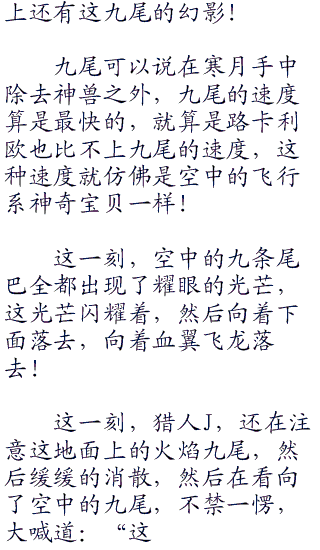 上还有这九尾的幻影！
九尾可以说在寒月手中
除去神兽之外，九尾的速度
算是最快的，就算是路卡利
欧也比不上九尾的速度，这
种速度就仿佛是空中的飞行
系神奇宝贝一样！
这一刻，空中的九条尾
巴全都出现了耀眼的光芒，
这光芒闪耀着，然后向着下
面落去，向着血翼飞龙落
去！
这一刻，猎人J，还在注
意这地面上的火焰九尾，然
后缓缓的消散，然后在看向
了空中的九尾，不禁一愣，
大喊道：“这